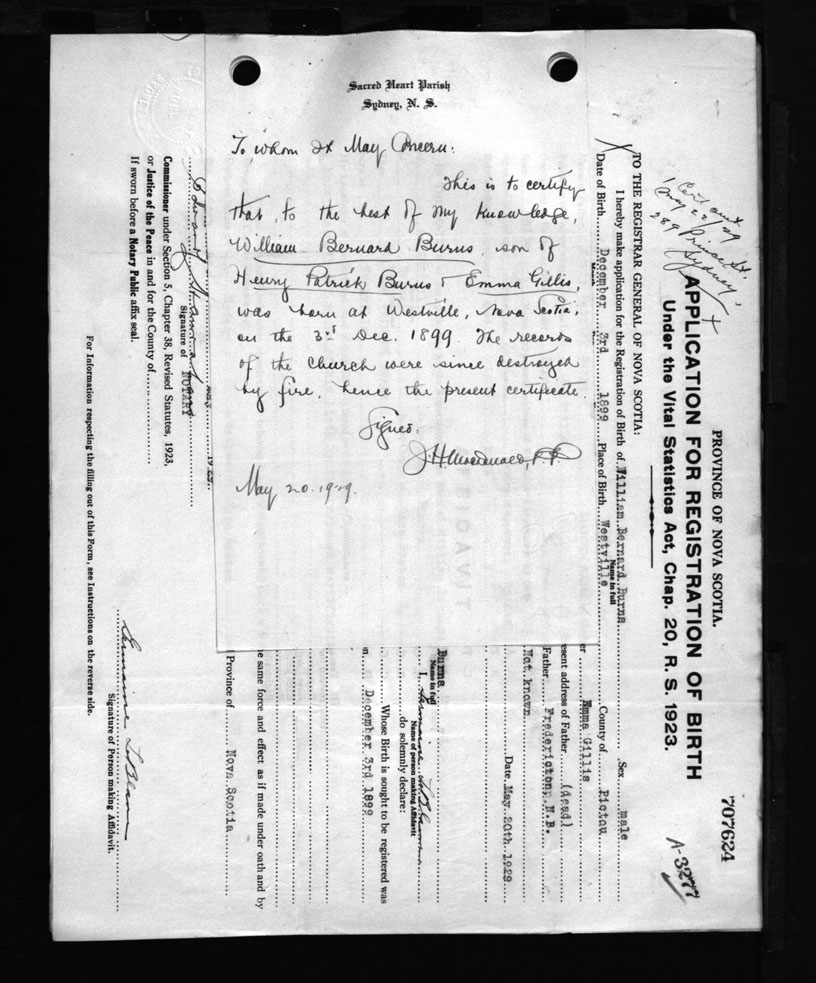 Sacred Heart Parish
Sydney, N. S.
To whom It May Concern:
This is to certify
that, to the best of my knowledge,
William Bernard Burns, son of
Henry Patrick Burns & Emma Gillis,
was born at Westville, Nova Scotia,
on the 3rd Dec. 1899. The records
of the Church were since destroyed
by fire, hence the present certificate.
Signed:
J. H. Macdonald, P. P.
May 20. 1929.
707624
A-3277
PROVINCE OF NOVA SCOTIA.
APPLICATION FOR REGISTRATION OF BIRTH
Under the Vital Statistics Act, Chap. 20, R. S. 1923.
May 22/29
289
Sydney,
TO THE REGISTRAR GENERAL OF NOVA SCOTIA:
I hereby make application for the Registration of Birth of William Bernard Burns Sex male
Name in full
Date of Birth December 3rd 1899 Place of Birth Westville County of Pictou
Emma Gillis
esent address of Father (dead)
Father Fredericton, N.B.
Not known
Date May 20th 1929
AFFIDAVIT
Burns
Name in full
I,
Name of person making Affidavit
do solemnly declare:
Whose Birth is sought to be registered was
n December 3rd 1899
Province of Nova Scotia
he same force and effect as if made under oath and by
Signature of NOTARY
Commissioner under Section 5, Chapter 38, Revised Statutes, 1923,
or Justice of the Peace in and for the County of
If sworn before a Notary Public affix seal.
Signature of Person making Affidavit.
For Information respecting the filling out of this Form, see Instructions on the reverse side.